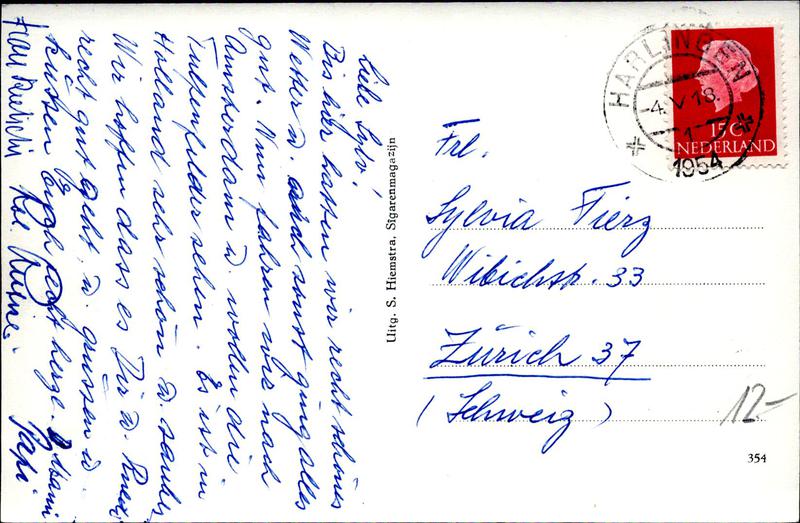 Liebe Sylv!
Bis hier hatten wir recht schönes
Wetter u. auch sonst ging alles
gut. Nun fahren wir nach
Amsterdam u. wollen die
Tulpenfelder sehen. Es ist in
Holland sehr schön u. sauber
Wir hoffen dass es Dir u. Ruedi
recht gut geht u. grüssen u.
küssen euch recht herzl. Mami
Papi
Frau
Uitg. S. Hiemstra, Sigarenmagazijn
HARLINGEN
4 V 18
1954
15 C
NEDERLAND
Frl.
Sylvia Fierz
Wibichstr. 33
Zürich 37
(Schweiz)
12.-
354